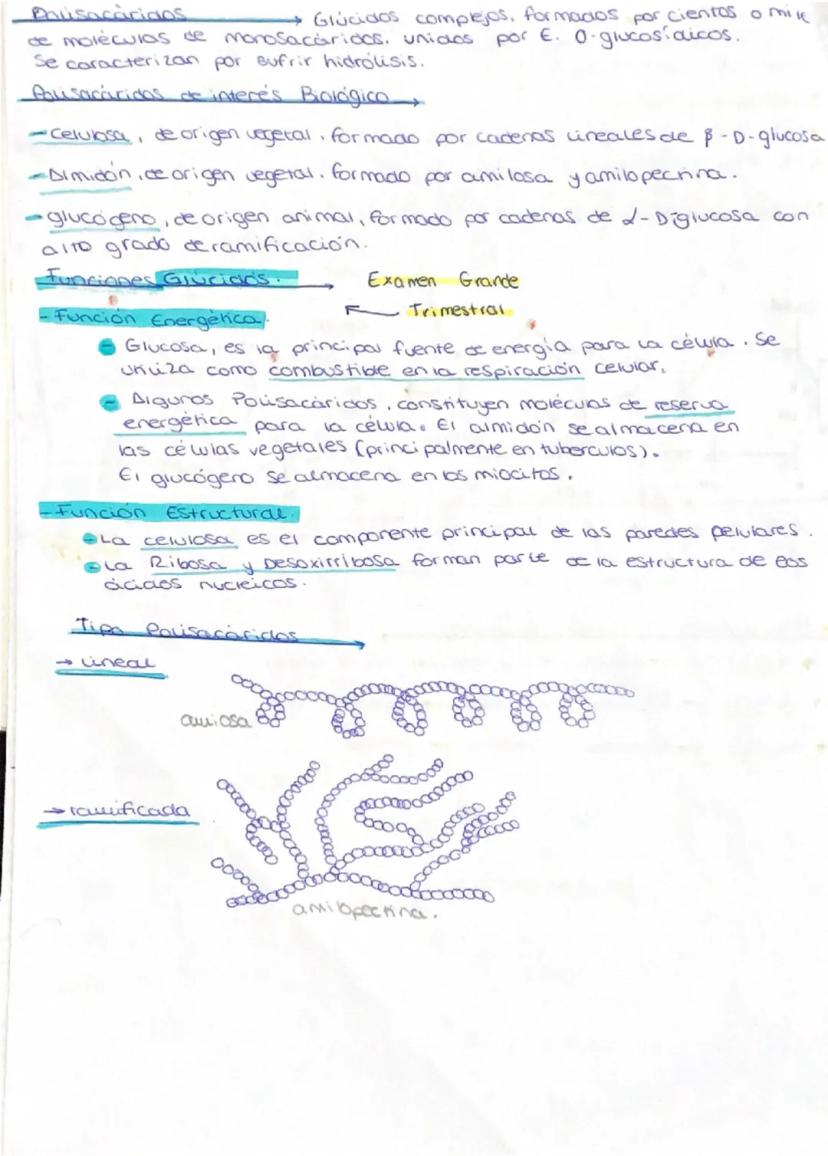 Polisacáridos → Glúcidos complejos, formados por cientos o mile
de moléculas de monosacáridos, unidos por E. O-glucosídicos.
Se caracterizan por sufrir hidrólisis.
Polisacáridos de interés Biológico →
- Celulosa, de origen vegetal, formado por cadenas lineales de β-D-glucosa
- Almidón, de origen vegetal, formado por amilosa y amilopectina.
- glucógeno, de origen animal, formado por cadenas de α-D-glucosa con
alto grado de ramificación.
Funciones Glúcidos. → Examen Grande
← Trimestral
- Función Energética.
Glucosa, es la principal fuente de energía para la célula. Se
utiliza como combustible en la respiración celular.
Algunos Polisacáridos, constituyen moléculas de reserva
energética para la célula. El almidón se almacena en
las células vegetales (principalmente en tuberculos).
El glucógeno se almacena en los miocitos.
- Función Estructural.
La celulosa es el componente principal de las paredes pelulares.
La Ribosa y Desoxirribosa forman parte de la estructura de eos
ácidos nucleicos.
Tipo Polisacáridos →
→ lineal
amilosa
→ ramificada
amilopectina.